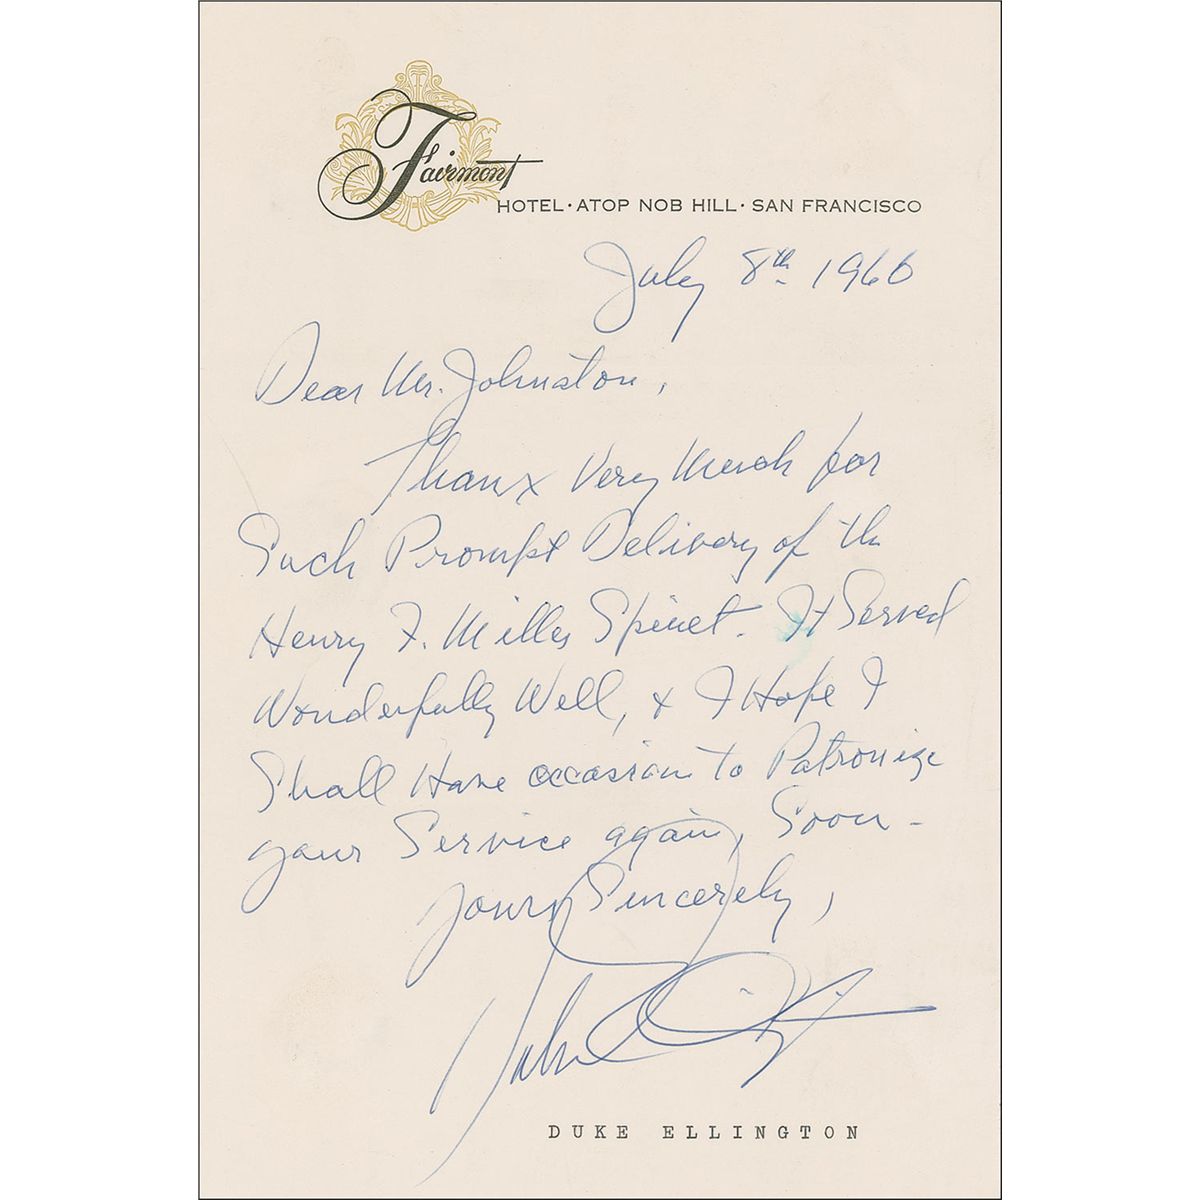 Fairmont
HOTEL · ATOP NOB HILL · SAN FRANCISCO
July 8th 1960
Dear Mr. Johnston,
Thanx Very Much for
Such Prompt Delivery of the
Henry F. Miller Spinet. It Served
Wonderfully Well, & I Hope I
Shall Have occasion to Patronize
your Service again, Soon -
Yours Sincerely,
Duke Ellington
DUKE ELLINGTON